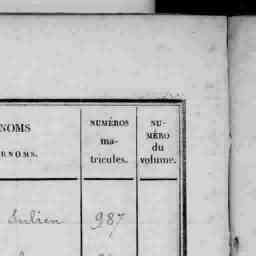 NOMS
RNOMS.
NUMÉROS
ma-
tricules.
NU-
MÉRO
du
volume.
Julien 987